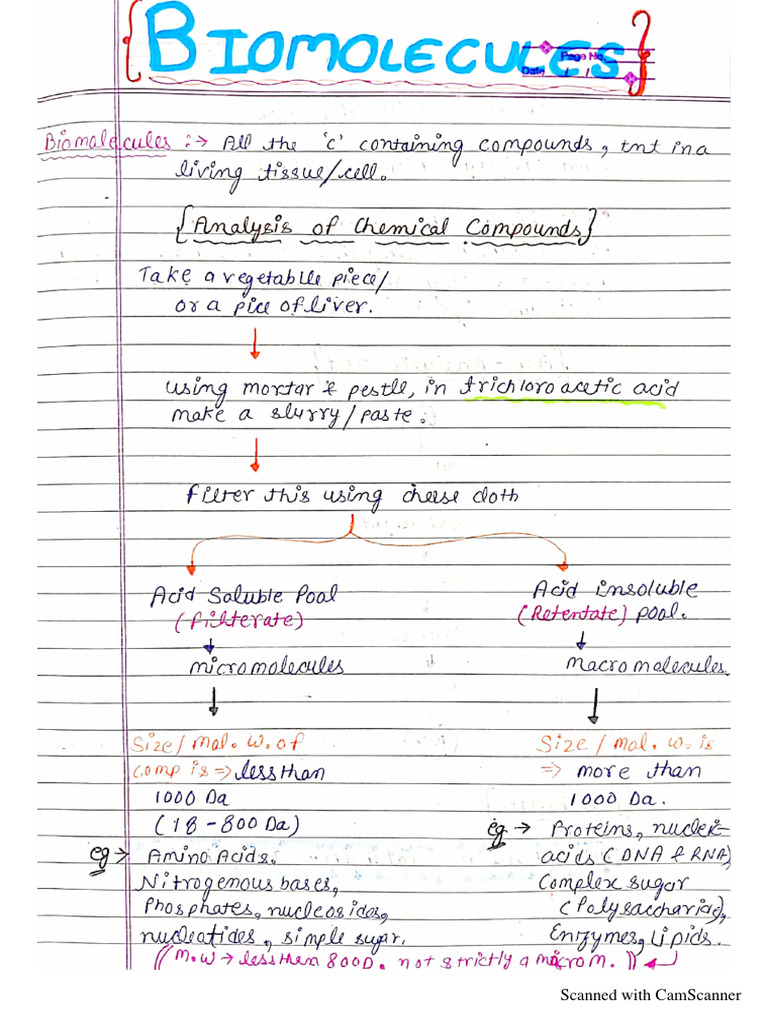 {BIOMOLECULES}
Page No.
Date / /
Biomolecules :→ All the 'c' containing compounds, tnt in a
living tissue/cell.
{Analysis of Chemical Compounds}
Take a vegetablle piece/
or a pice of liver.
using mortar & pestle, in trichloro acetic acid
make a slurry/paste.
filter this using cheese cloth
Acid Soluble Pool
(filterate)
micromolecules
Size/mol. w. of
comp is ⇒ less than
1000 Da
(18-800 Da)
eg → Amino Acids,
Nitrogenous bases,
Phosphates, nucleosides,
nucleotides, simple sugar.
Acid insoluble
(Retentate) pool.
macromolecules.
Size/mol. w. is
⇒ more than
1000 Da.
eg → Proteins, nucleic
acids (DNA & RNA),
Complex sugar
(Polysaccharide),
Enzymes, Lipids.
((m.w → less then 800D. not strictly a macrom.))
Scanned with CamScanner